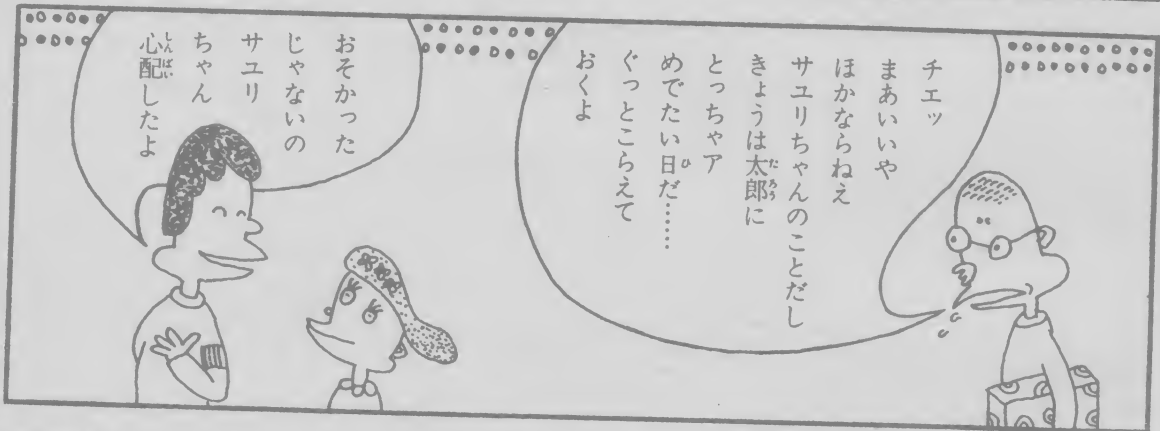 チエッ
まあいいや
ほかならねえ
サユリちゃんのことだし
きょうは太郎に
とっちゃア
めでたい日だ……
ぐっとこらえて
おくよ
おそかった
じゃないの
サユリ
ちゃん
心配したよ